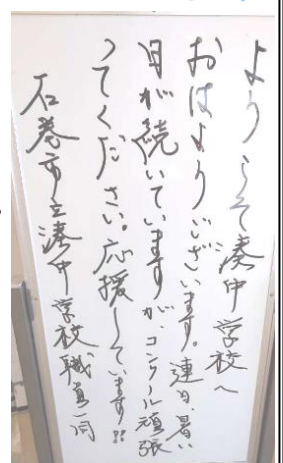 ようこそ湊中学校へ
おはようございます。連日、暑い
日が続いていますが、コンクール頑張
ってください。応援しています!!
石巻市立湊中学校職員一同